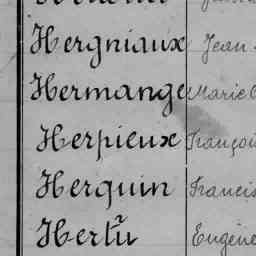 Hergniaux Jean
Hermange Marie
Herpieux François
Herquin Francis
Hertũ Eugène